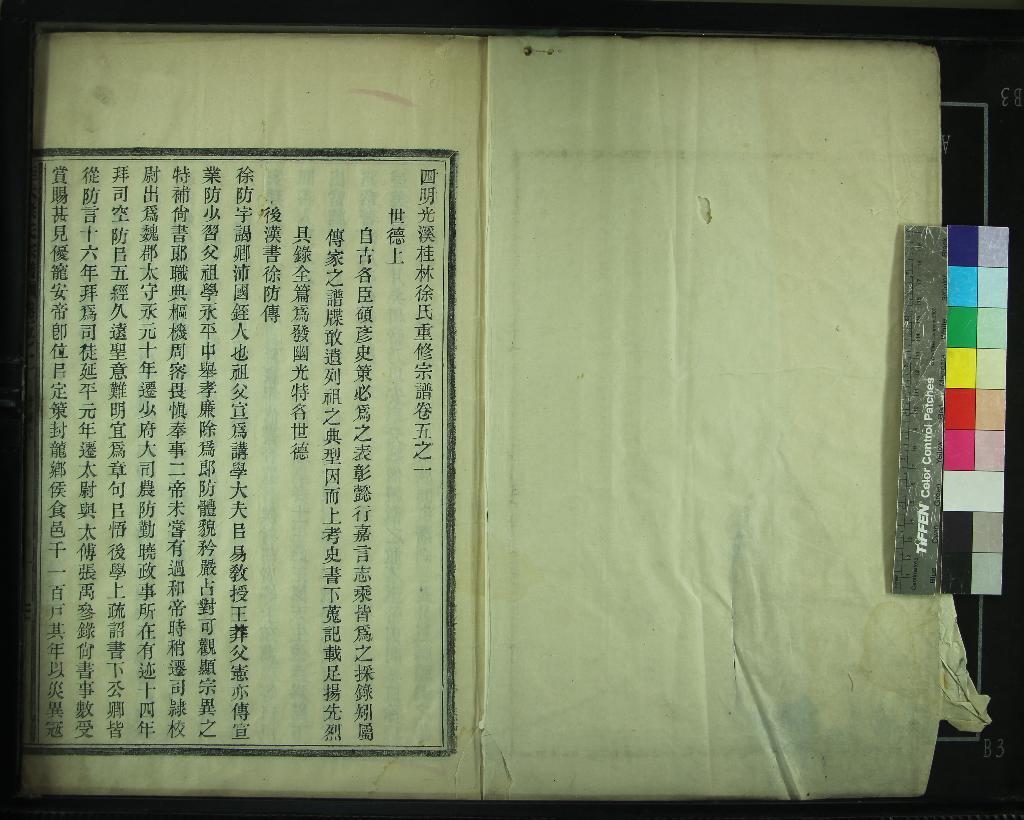 四明光溪桂林徐氏重修宗譜卷五之一
世德上
自古名臣碩彥史策必爲之表彰懿行嘉言志乘皆爲之採錄矧屬
傳家之譜牒敢遺列祖之典型因而上考史書下蒐記載足揚先烈
具錄全篇爲發幽光特名世德
後漢書徐防傳
徐防字謁卿沛國銍人也祖父宣爲講學大夫㠯易敎授王莽父憲亦傳宣
業防少習父祖學永平中舉孝廉除爲郎防體貌矜嚴占對可觀顯宗異之
特補尙書郎職典樞機周密畏愼奉事二帝未嘗有過和帝時稍遷司隷校
尉出爲魏郡太守永元十年遷少府大司農防勤曉政事所在有迹十四年
拜司空防㠯五經久遠聖意難明宜爲章句㠯悟後學上疏詔書下公卿皆
從防言十六年拜爲司徒延平元年遷太尉與太傅張禹參錄尙書事數受
賞賜甚見優寵安帝卽位㠯定策封龍鄕侯食邑千一百戶其年以災異寇
TIFFEN Color Control Patches
B3
A
B3